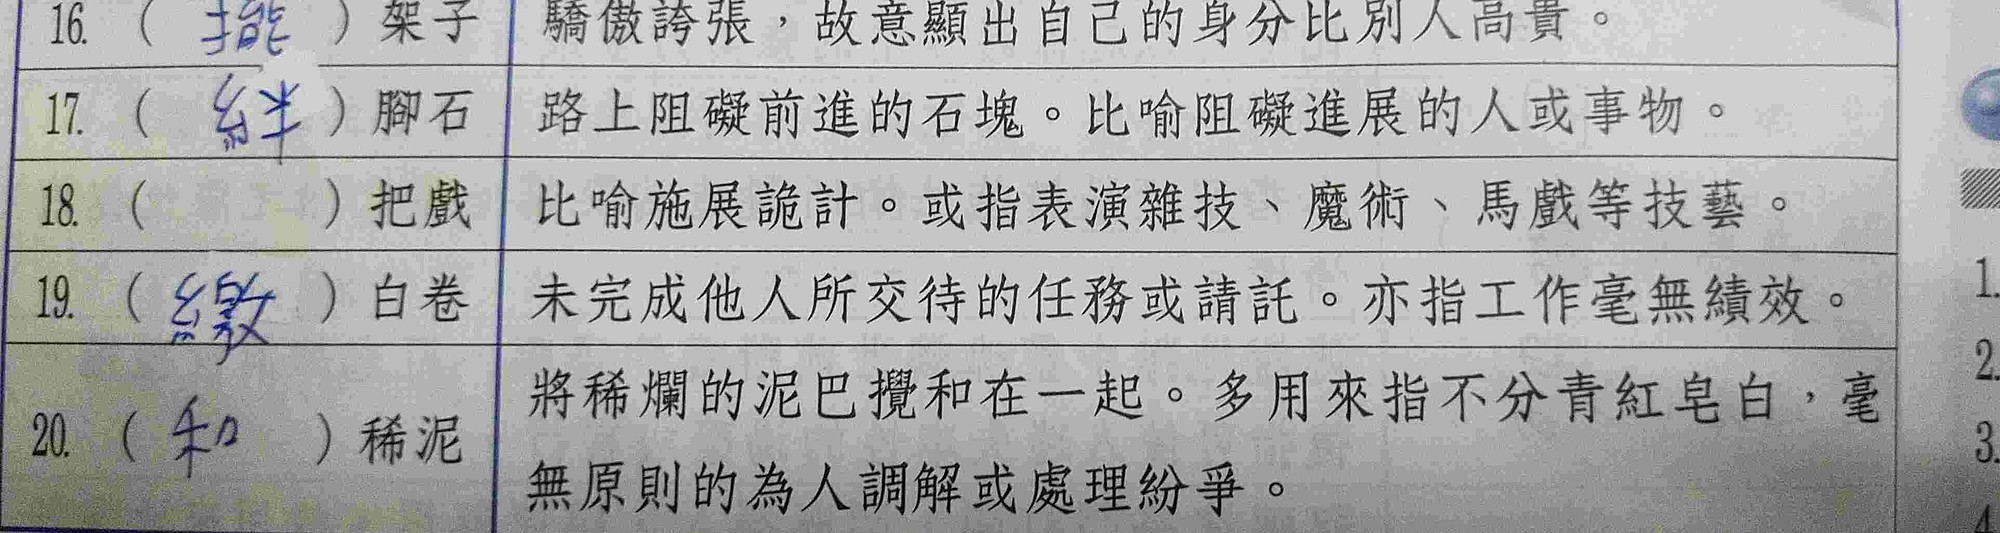 16. ( 擺 ) 架子 驕傲誇張，故意顯出自己的身分比別人高貴。
17. ( 絆 ) 腳石 路上阻礙前進的石塊。比喻阻礙進展的人或事物。
18. ( ) 把戲 比喻施展詭計。或指表演雜技、魔術、馬戲等技藝。
19. ( 繳 ) 白卷 未完成他人所交待的任務或請託。亦指工作毫無績效。
20. ( 和 ) 稀泥 將稀爛的泥巴攪和在一起。多用來指不分青紅皂白，毫
無原則的為人調解或處理紛爭。
1.
2.
3.
4